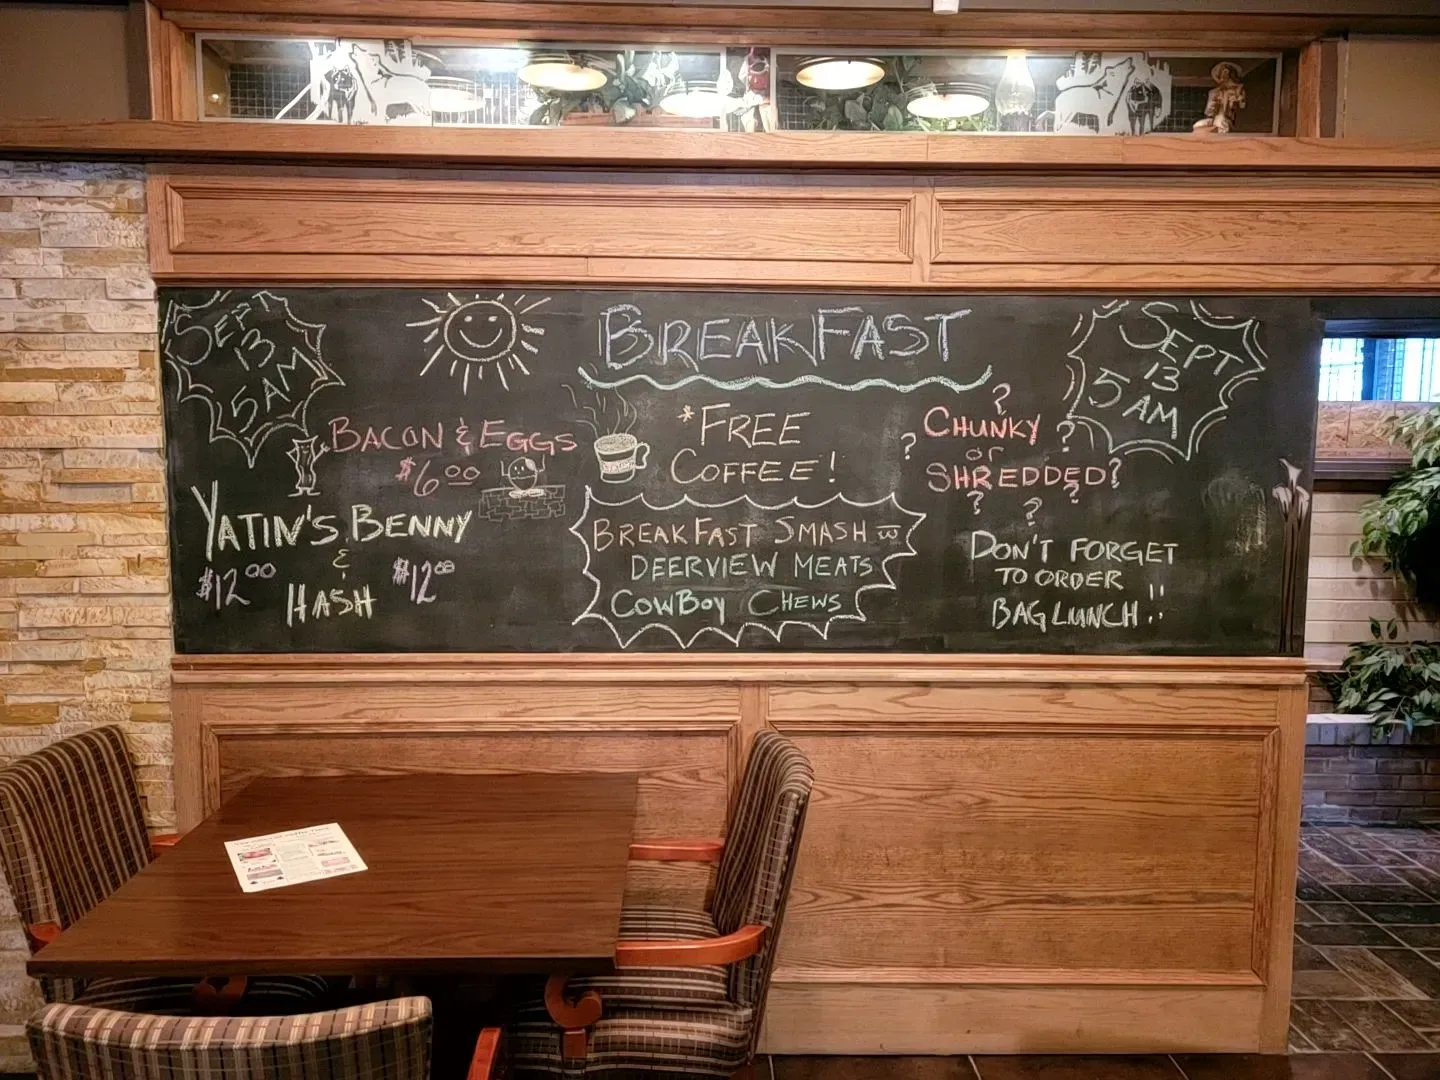 SEPT
13
5AM
BREAKFAST
SEPT
13
5 AM
BACON & EGGS
$6.00
*FREE
COFFEE!
?
CHUNKY ?
? or
SHREDDED?
? ? ?
YATIN'S BENNY
&
$12.00 HASH $12.00
BREAKFAST SMASH
DEERVIEW MEATS
COWBOY CHEWS
DON'T FORGET
TO ORDER
BAG LUNCH!!